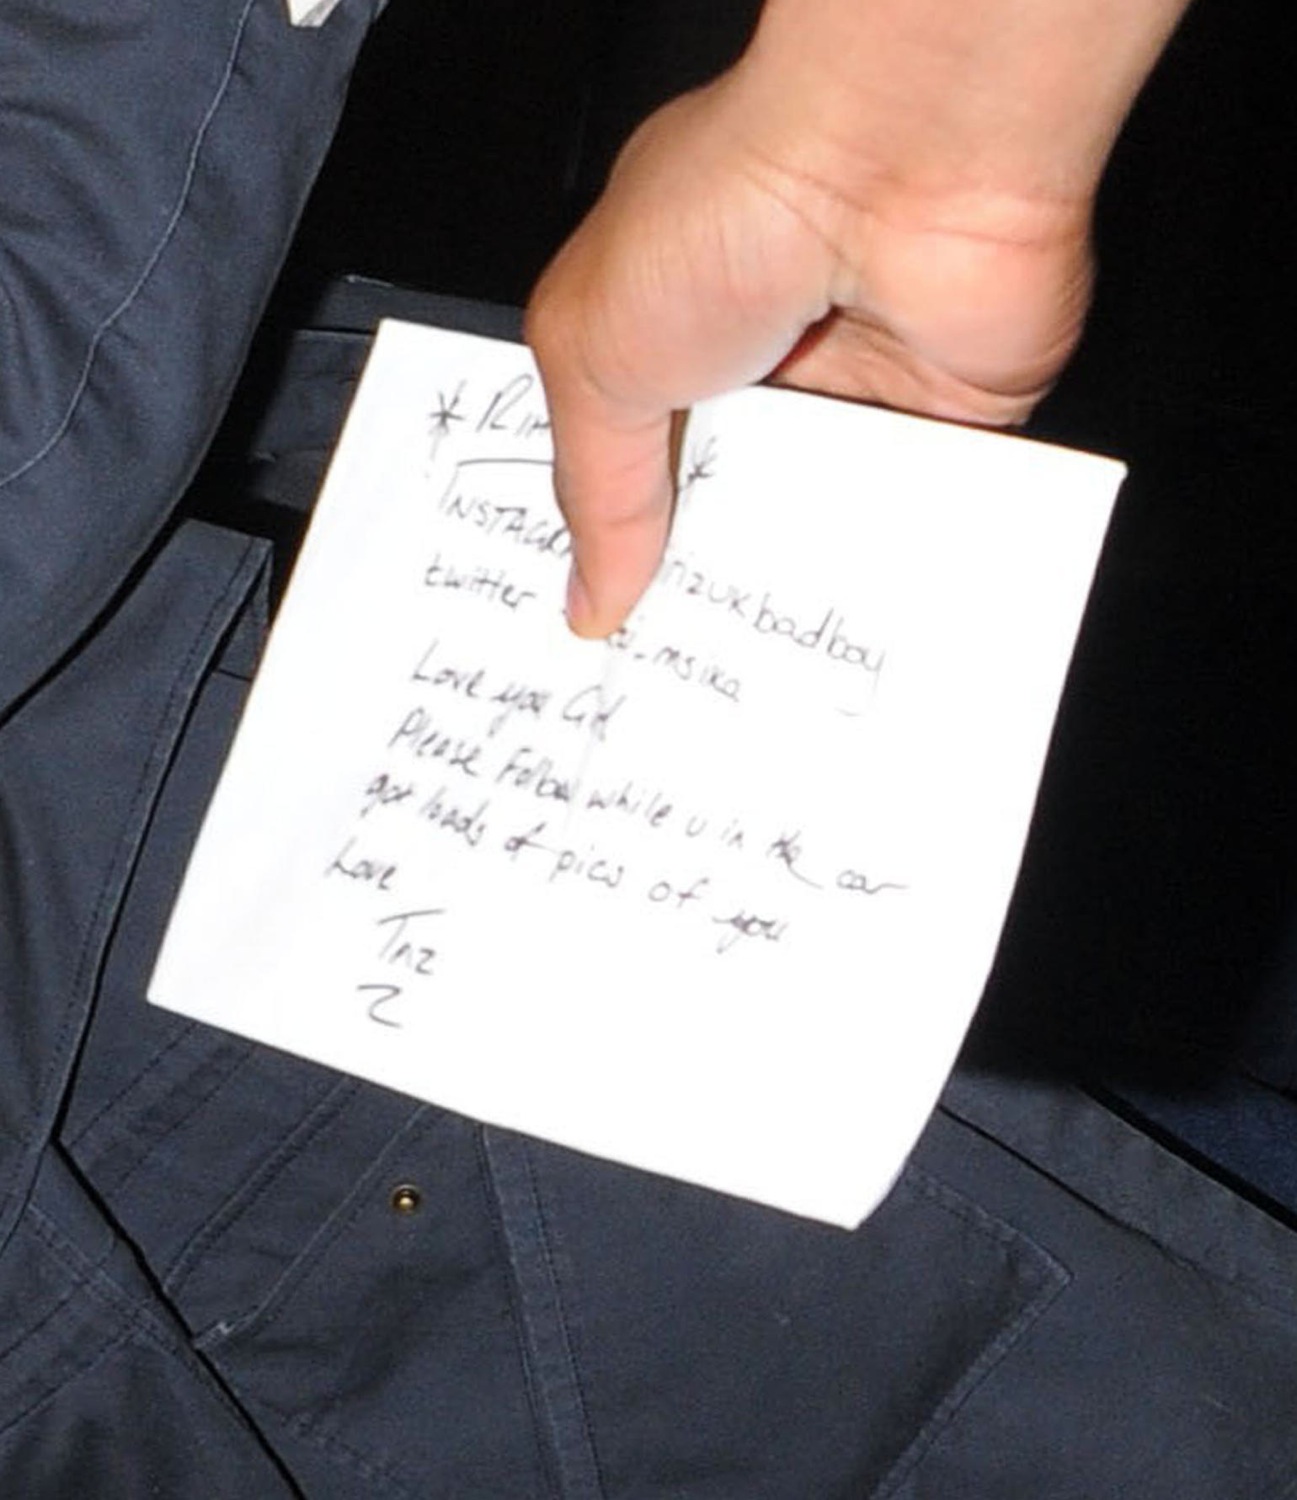 * RIH *
INSTAGRA rizukbadboy
twitter zi_msika
Love you Girl
Please Follow while u in the car
got loads of pics of you
Love